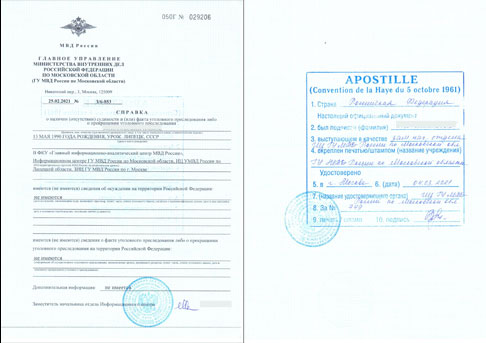 050Г № 029206
МВД России
ГЛАВНОЕ УПРАВЛЕНИЕ
МИНИСТЕРСТВА ВНУТРЕННИХ ДЕЛ
РОССИЙСКОЙ ФЕДЕРАЦИИ
ПО МОСКОВСКОЙ ОБЛАСТИ
(ГУ МВД России по Московской области)
Никитский пер., 3, Москва, 125009
25.02.2021 № 3/6-853
СПРАВКА
о наличии (отсутствии) судимости и (или) факта уголовного преследования либо
о прекращении уголовного преследования
13 МАЯ 1990 ГОДА РОЖДЕНИЯ, УРОЖ. ЛИПЕЦК, СССР
В ФКУ «Главный информационно-аналитический центр МВД России»,
Информационном центре ГУ МВД России по Московской области, ИЦ УМВД России по
Липецкой области, ЗИЦ ГУ МВД России по г. Москве
имеются (не имеются) сведения об осуждении на территории Российской Федерации:
не имеются
имеются (не имеются) сведения о факте уголовного преследования либо о прекращении
уголовного преследования на территории Российской Федерации:
не имеются
Дополнительная информация: не имеется
Заместитель начальника отдела Информационного центра
APOSTILLE
(Convention de la Haye du 5 octobre 1961)
1. Страна Российская Федерация
Настоящий официальный документ
2. был подписан (фамилия)
3. выступающим в качестве зам. нач. отдела
ИЦ ГУ МВД России по Московской обл.
4. скреплен печатью/штампом (название учреждения)
ГУ МВД России по Московской области
Удостоверено
5. в г. Москве 6. (дата) 04.03.2021
7. (название удостоверяющего органа) ГУ МВД
России по Московской обл.
8. За №
9. печать штамп 10. подпись